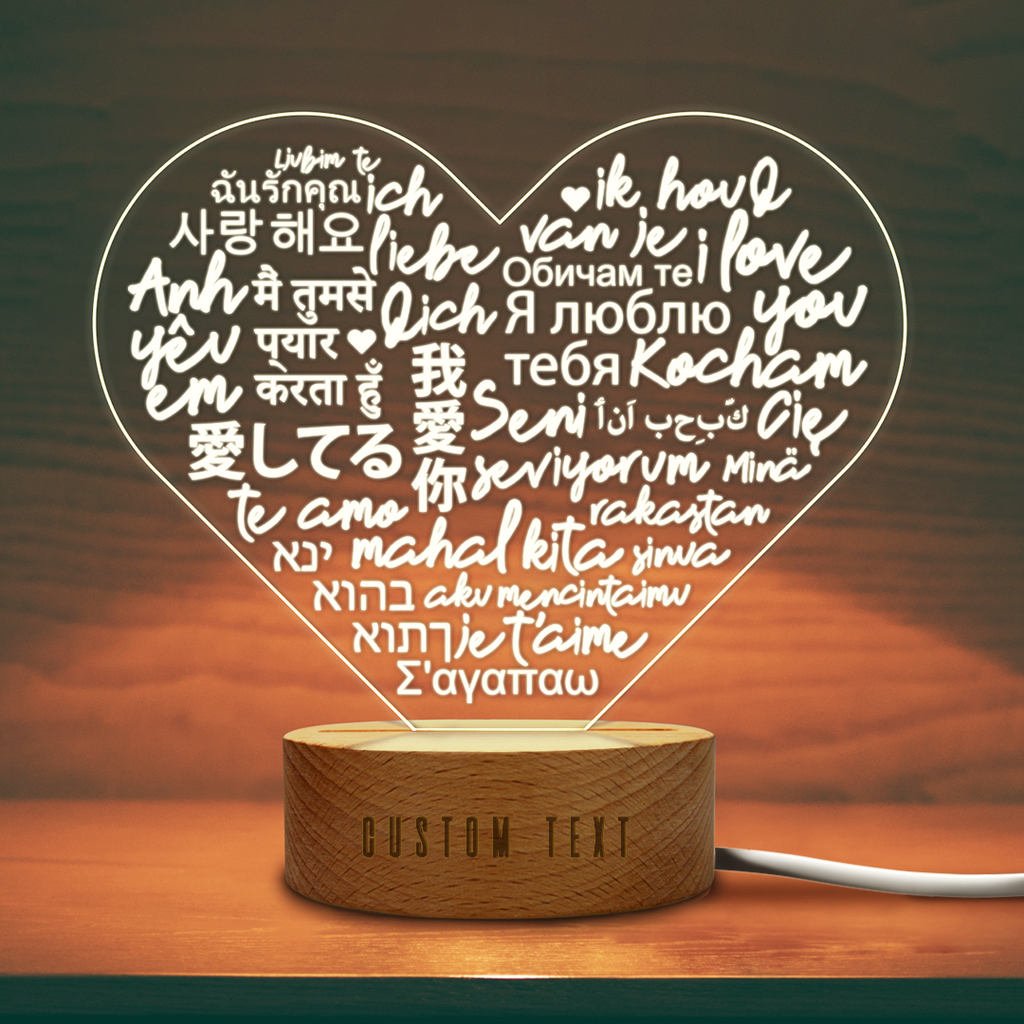 Ljubim te
ฉันรักคุณ
사랑해요
ich
liebe
Dich
Anh
yêu
em
मै तुमसे
प्यार
करता हुँ
愛してる
我
愛
你
ik houD
van je
i love
you
Обичам те
Я люблю
тебя
Kocham
Cię
Seni
seviyorum
كّبِحب اَنأ
Minä
rakastan
sinua
te amo
mahal kita
ינא
בהוא
ךתוא
aku mencintaimu
je t'aime
Σ'αγαπαω
CUSTOM TEXT